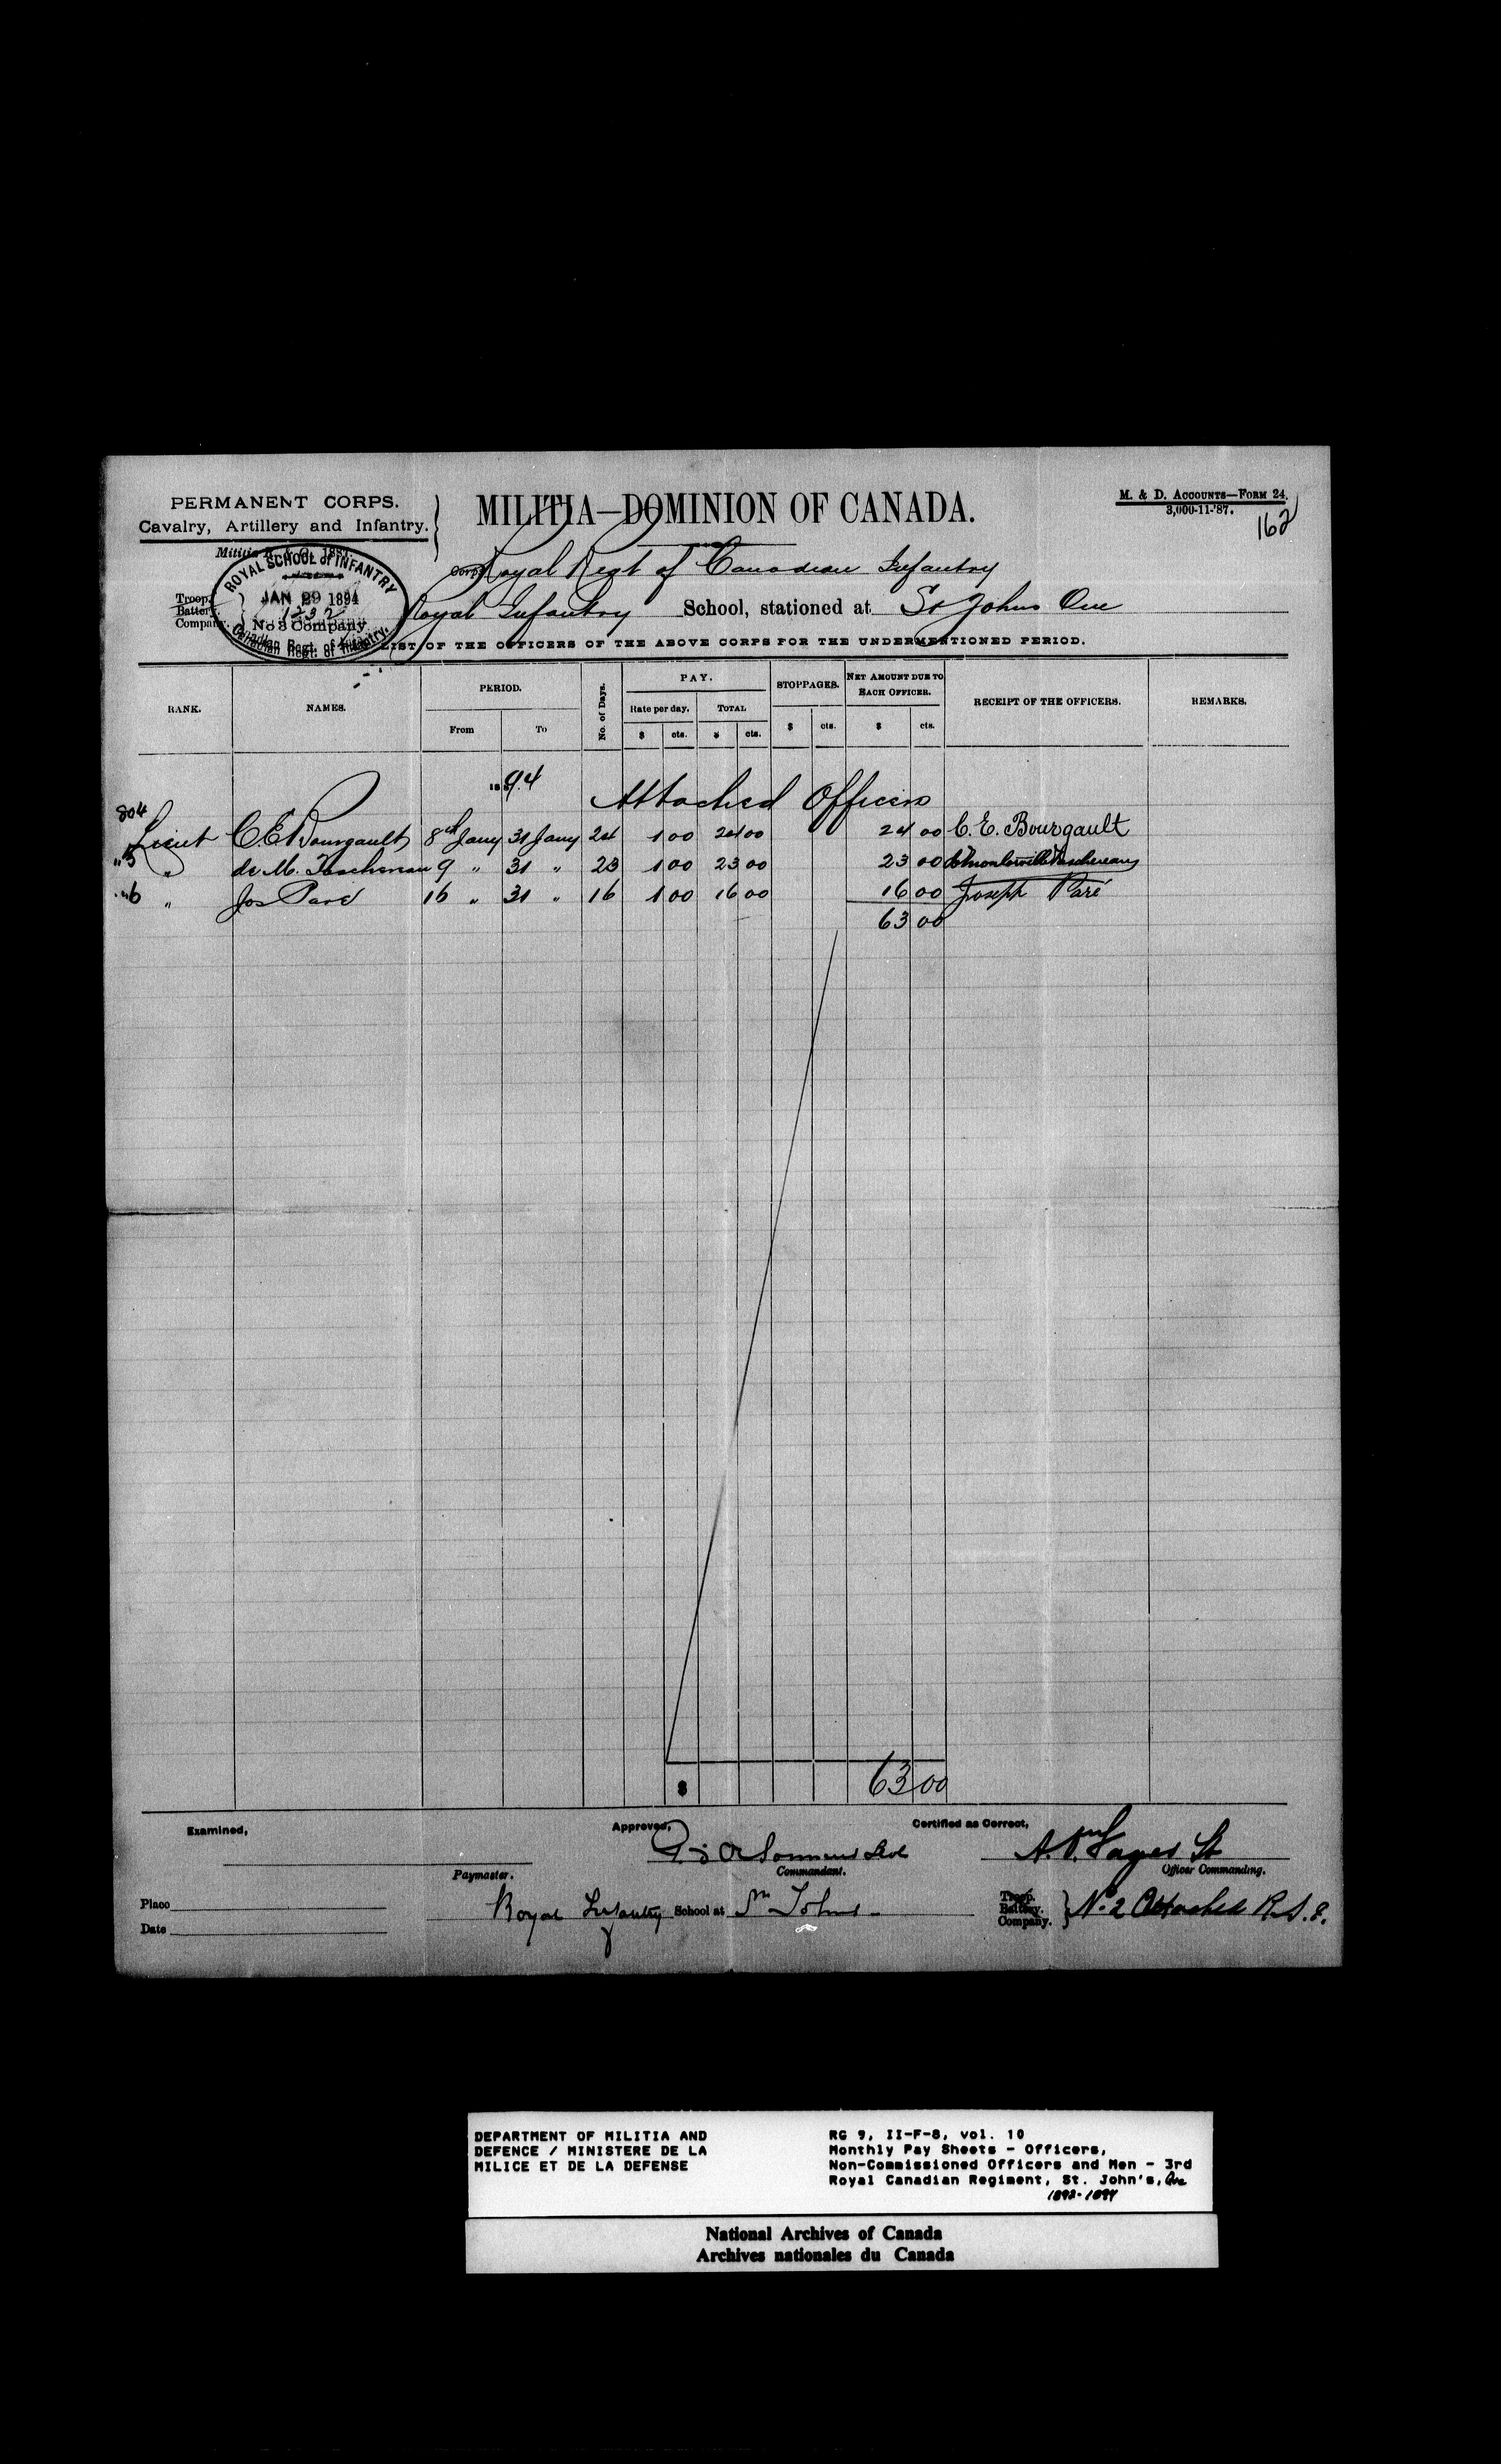 PERMANENT CORPS.
Cavalry, Artillery and Infantry.
MILITIA—DOMINION OF CANADA.
M. & D. Accounts—Form 24.
3,000-11-'87.
162
Corps Royal Regt of Canadian Infantry
ROYAL SCHOOL of INFANTRY
JAN 29 1894
1232
No 3 Company
Canadian Regt. of Infantry.
Troop.
Battery.
Company.
Royal Infantry School, stationed at St Johns Que
LIST OF THE OFFICERS OF THE ABOVE CORPS FOR THE UNDERMENTIONED PERIOD.
RANK. NAMES. PERIOD. From To No. of Days. PAY. Rate per day. $ cts. TOTAL $ cts. STOPPAGES. $ cts. NET AMOUNT DUE TO EACH OFFICER. $ cts. RECEIPT OF THE OFFICERS. REMARKS.
1894 Attached Officers
804
Lieut C.E. Bourgault 8th Jany 31 Jany 24 1 00 24 00 24 00 C. E. Bourgault
"5 " de M. Taschereau 9 " 31 " 23 1 00 23 00 23 00
"6 " Jos Paré 16 " 31 " 16 1 00 16 00 16 00 Joseph Paré
63 00
$ 63 00
Examined, Approved, Certified as Correct,
Paymaster. Commandant. Officer Commanding.
Place
Date
Royal Infantry School at St Johns
Troop.
Battery.
Company. } No 2 Attached R.S.I.
DEPARTMENT OF MILITIA AND
DEFENCE / MINISTERE DE LA
MILICE ET DE LA DEFENSE
RG 9, II-F-8, vol. 10
Monthly Pay Sheets - Officers,
Non-Commissioned Officers and Men - 3rd
Royal Canadian Regiment, St. John's, Que
1892-1894
National Archives of Canada
Archives nationales du Canada